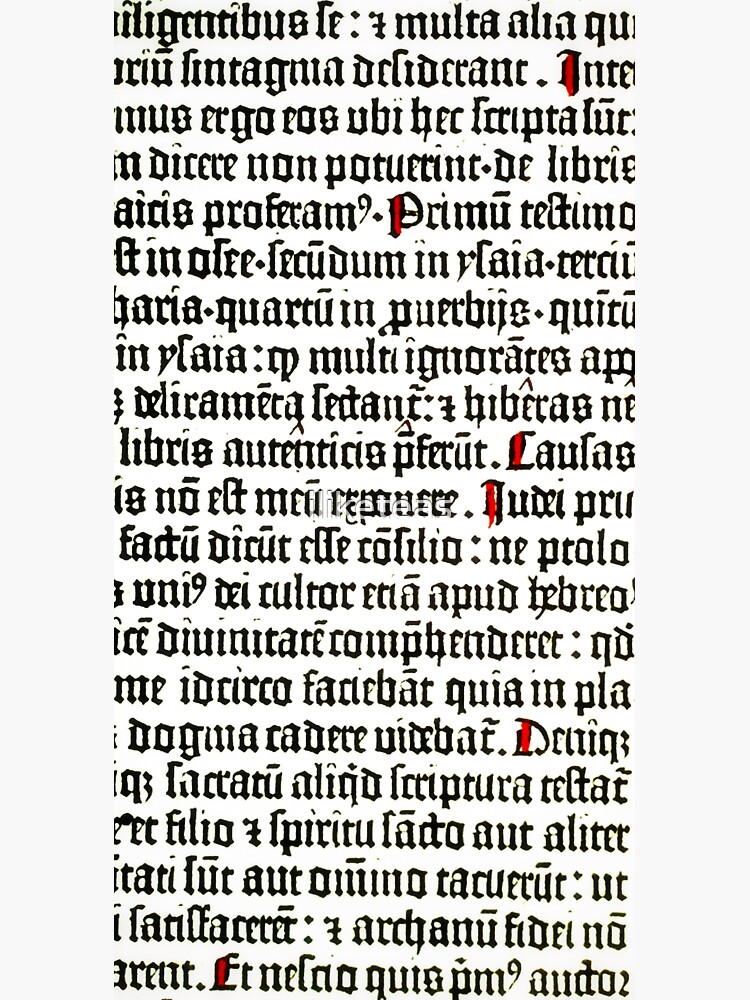 iligentibus se : ⁊ multa alia qui
oriū sintagma desiderant . Inte
mus ergo eos ubi hec scripta sūt:
m dicere non potuerint · de libris
aicis proferamꝰ · Primū testimo
st in osee · secūdum in ysaia · terciū
haria · quartū in ꝓuerbijs · quītū
in ysaia : qƺ multi ignorātes apo
ꝫ deliramēta sectant᷑ : ⁊ hibêras ne
libris autênticis p̄ferūt . Causas
is nō est meū iliketeas . Iudei pru
factū dicūt esse cōsilio : ne ptolo
s uniꝰ dei cultor etiā apud hebreoꝰ
icē diuinitatē comp̄henderet : qd̄
me idcirco faciebāt quia in pla
dogma cadere uidebat᷑ . Deniqꝫ
iqꝫ sacratū aliqd̄ scriptura testat᷑
et filio ⁊ spiritu sācto aut aliter
itati sūt aut om̄ino tacuerūt : ut
i satisfaceret᷑ : ⁊ archanū fidei nō
arent . Et nescio quis p̄mꝰ auctor